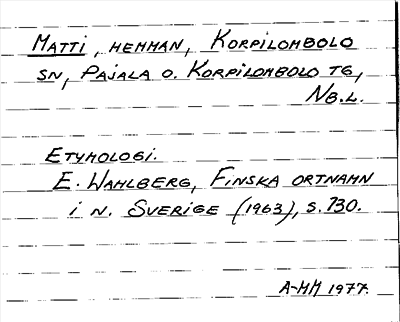 MATTI, HEMMAN, KORPILOMBOLO
SN, PAJALA O. KORPILOMBOLO TG,
NB.L.
ETYMOLOGI.
E. WAHLBERG, FINSKA ORTNAMN
I N. SVERIGE (1963), S. 730.
A-MM 1977.